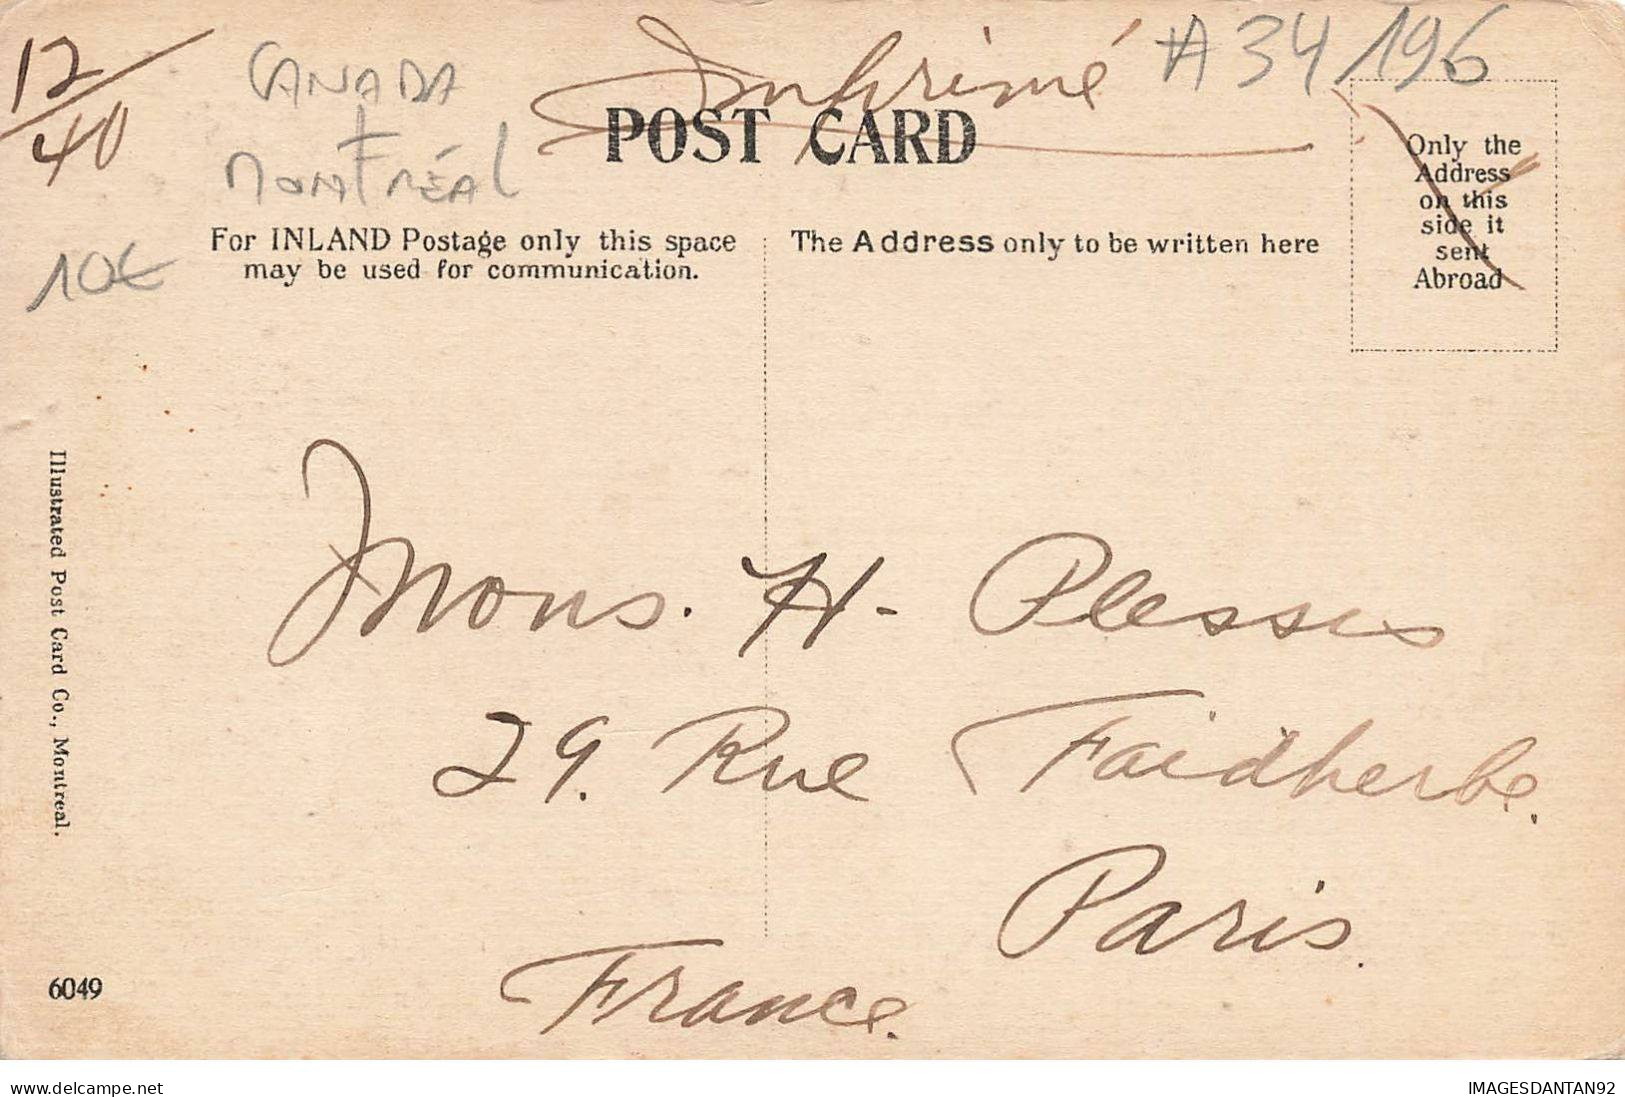 17/40
CANADA
Montréal
10€
Imprimé
#34196
POST CARD
For INLAND Postage only this space
may be used for communication.
The Address only to be written here
Only the
Address
on this
side it
sent
Abroad
Illustrated Post Card Co., Montreal.
6049
Mons. H- Plessis
29. Rue Faidherbe.
Paris.
France.
www.delcampe.net
IMAGESDANTAN92